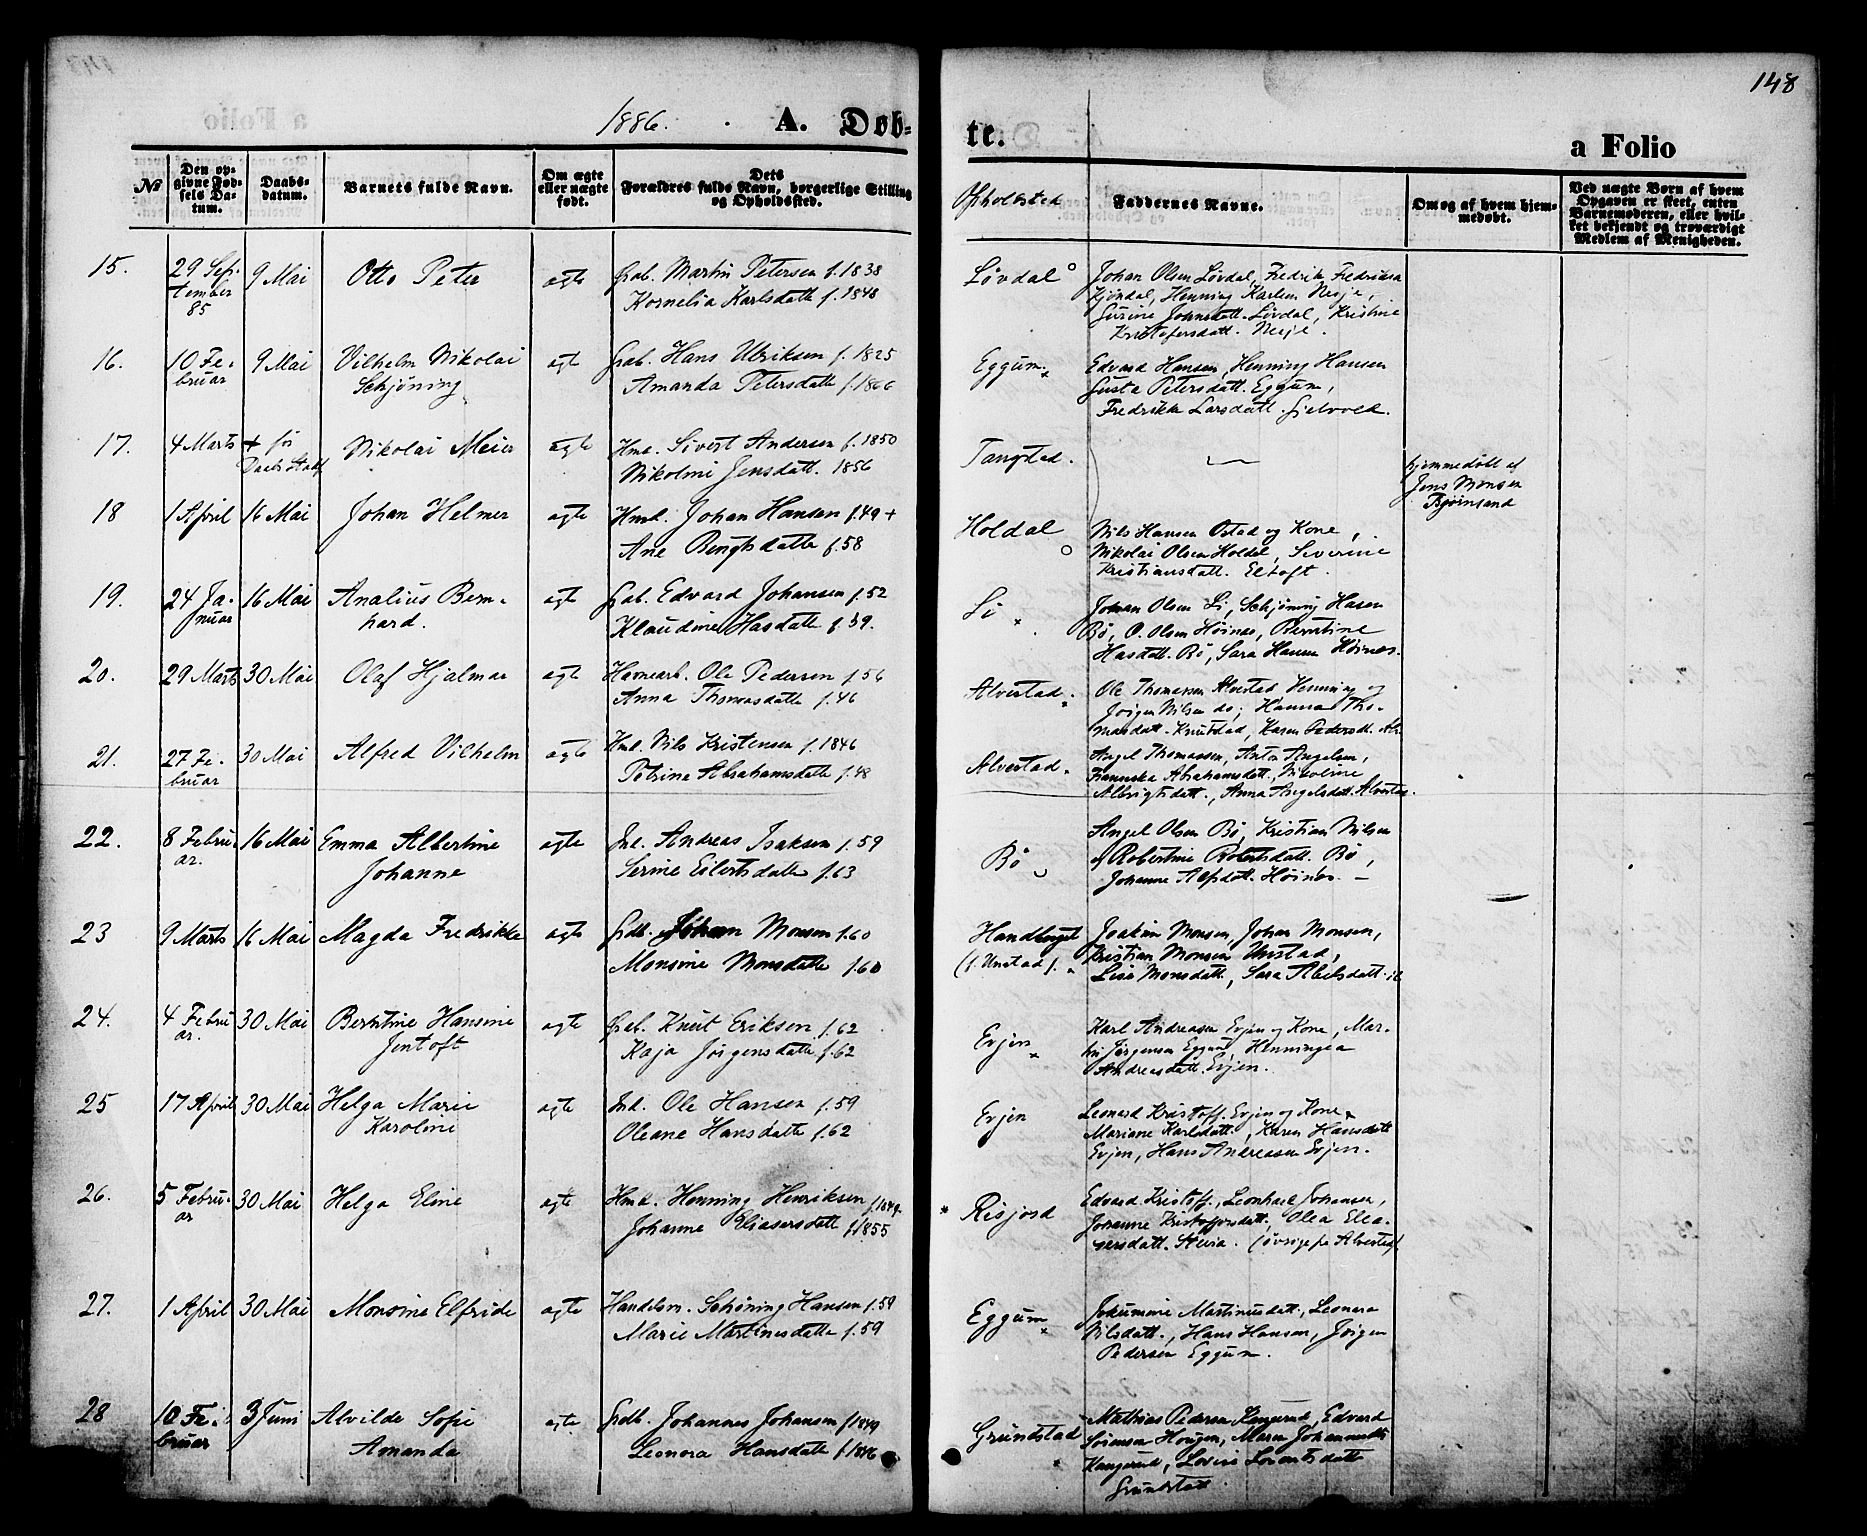 148
1886. A. Døb-
te. a Folio
No
Den op-
givne Fød-
sels Da-
tum.
Daabs-
datum.
Barnets fulde Navn.
Om ægte
eller uægte
født.
Dets
Forældres fulde Navn, borgerlige Stilling
og Opholdssted.
Opholdsted
Faddernes Navne.
Om og af hvem hjem-
medøbt.
Ved uægte Børn af hvem
Opgaven er skeet, enten
Barnemoderen, eller hvil-
ket bekjendt og troværdigt
Medlem af Menigheden.
15. 29 Sep-
tember
85
9 Mai Otto Peter ægte
Gab. Martin Petersen f. 1838
Kornelia Karlsdatte f. 1848
Løvdal
Johan Olsen Løvdal, Fredrik Fredriksen
Henning Karlsen Nesje,
Johnsdatt. Løvdal, Kristine
Kristofersdatt. Nesje.
16. 10 Fe-
bruar
9 Mai Vilhelm Nikolai
Schjøning
ægte
Gab. Hans Ulriksen f. 1825
Amanda Petersdatte f. 1866
Eggum
Edvard Hansen, Henning Hansen
Gusta Petersdatt. Eggum,
Fredrikke Larsdatt.
17. 4 Marts + før
Nikolai Meier ægte
Hmd. Sivert Andersen f. 1850
Nikoline Jensdatt. 1856
Tangstad.
hjemmedøbt af
Jens Monsen
Bjørnsand
18 1 April 16 Mai Johan Helmer ægte
Hmd. Johan Hansen f. 49 +
Ane Bengtsdatte f. 58
Holdal
Nils Hansen Ostad og Kone,
Nikolai Olsen Holdal, Severine
Kristiansdatt. Eltoft.
19. 24 Ja-
nuar
16 Mai Analius Bern-
hard.
ægte
Gab. Edvard Johansen f. 52
Klaudine Hasdatte f. 59.
Li
Johan Olsen Li, Schjøning Hasen
Bø, O. Olsen Høines, Berntine
Hasdatt. Bø, Sara Hansen Høines.
20. 29 Marts 30 Mai Olaf Hjalmar ægte
Havnearb. Ole Pedersen f. 56
Anna Thomasdatte f. 46
Alvestad.
Ole Thomassen Alvestad Henning og
Jørgen Nilsen do; Hanna Tho-
masdatt. Knutstad, Karen Pedersd. Alv.
21. 27 Fe-
bruar
30 Mai Alfred Vilhelm ægte
Hmd. Nils Kristensen f. 1846
Petrine Abrahamsdatte f. 48
Alvestad.
Angel Thomassen, Anton Angelsen,
Abrahamsdatt., Nikoline
Albrigtsdatt., Anna Angelsdatt. Alvestad.
22. 8 Febru-
ar.
16 Mai Emma Albertine
Johanne
ægte
Ind. Andreas Isaksen f. 59
Serine Eilertsdatte f. 63
Bø
Angel Olsen Bø, Kristian Nilsen
og Robertine Robertsdatt. Bø,
Johanne Alfsdatt. Høines.
23 9 Marts 16 Mai Magda Fredrikke ægte
Grdb. Johan Monsen f. 60
Monsine Monsdatte f. 60
Handberget
(f. Unstad).
Joakim Monsen, Johan Monsen,
Kristian Monsen Unstad,
Lise Monsdatt., Sara Abelsdatt. ib
24. 4 Febru-
ar.
30 Mai Berntine Hansine
Jentoft
ægte
Gab. Knut Eriksen f. 62
Kaja Jörgensdatte f. 62
Evjen
Karl Andreassen Evjen og Kone, Mar-
tin Jørgensen Eggum, Henningea
Andreasdatt. Evjen.
25 17 April 30 Mai Helga Marie
Karoline
ægte
Ind. Ole Hansen f. 59
Oleane Hansdatte f. 62
Evjen
Leonard Kristoff. Evjen og Kone
Mariane Karlsdatt., Karen Hansdatt
Evjen, Hans Andreassen Evjen.
26. 5 Febru-
ar
30 Mai Helga Eline ægte
Hmd. Henning Henriksen f. 1849.
Johanne Eliasersdatte f. 1855
Risjord
Edvard Kristoff., Leonhard Johansen,
Johanne Kristoffersdatt., Olea Elea-
sersdatt. Steira. (øvrige fra Alvestad)
27. 1 April 30 Mai Monsine Elfride ægte
Handelsm. Schøning Hansen f. 59
Marie Martinusdatte f. 59
Eggum
Jokumine Martinusdatt., Leonora
Nilsdatt., Hans Hansen, Jørgen
Pedersen Eggum.
28 10 Fe-
bruar
3 Juni Alvilde Sofie
Amanda
ægte
Grdb. Johannes Johansen f. 1849
Leonora Hansdatte f. 1846
Grundstad
Mathias Pedersen Kangerud, Edvard
Sørensen Hougen, Maren Johannesdtt
Kangerud, Lovise Lorentsdatte
Grundstad